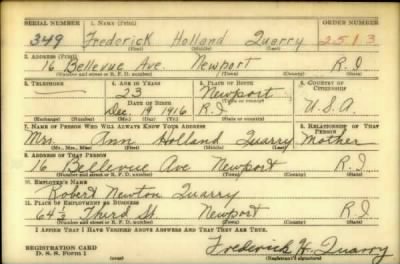 SERIAL NUMBER 1. NAME (Print) ORDER NUMBER
349 Frederick Holland Quarry 2513
(First) (Middle) (Last)
2. ADDRESS (Print)
16 Bellevue Ave. Newport R.I.
(Number and street or R. F. D. number) (Town) (County) (State)
3. TELEPHONE 4. AGE IN YEARS 5. PLACE OF BIRTH 6. COUNTRY OF CITIZENSHIP
23 Newport
DATE OF BIRTH (Town or county)
Dec. 19 1916 R.I. U.S.A
(Mo.) (Day) (Yr.) (State or country)
7. NAME OF PERSON WHO WILL ALWAYS KNOW YOUR ADDRESS 8. RELATIONSHIP OF THAT PERSON
Mrs. Ann Holland Quarry Mother
(Mr., Mrs., Miss) (First) (Middle) (Last)
9. ADDRESS OF THAT PERSON
16 Bellevue Ave Newport R.I.
(Number and street or R. F. D. number) (Town) (County) (State)
10. EMPLOYER'S NAME
Robert Newton Quarry
11. PLACE OF EMPLOYMENT OR BUSINESS
64½ Third St. Newport R.I.
(Number and street or R. F. D. number) (Town) (County) (State)
I AFFIRM THAT I HAVE VERIFIED ABOVE ANSWERS AND THAT THEY ARE TRUE.
REGISTRATION CARD
D. S. S. Form 1 (over) Frederick H. Quarry
(Registrant's signature)